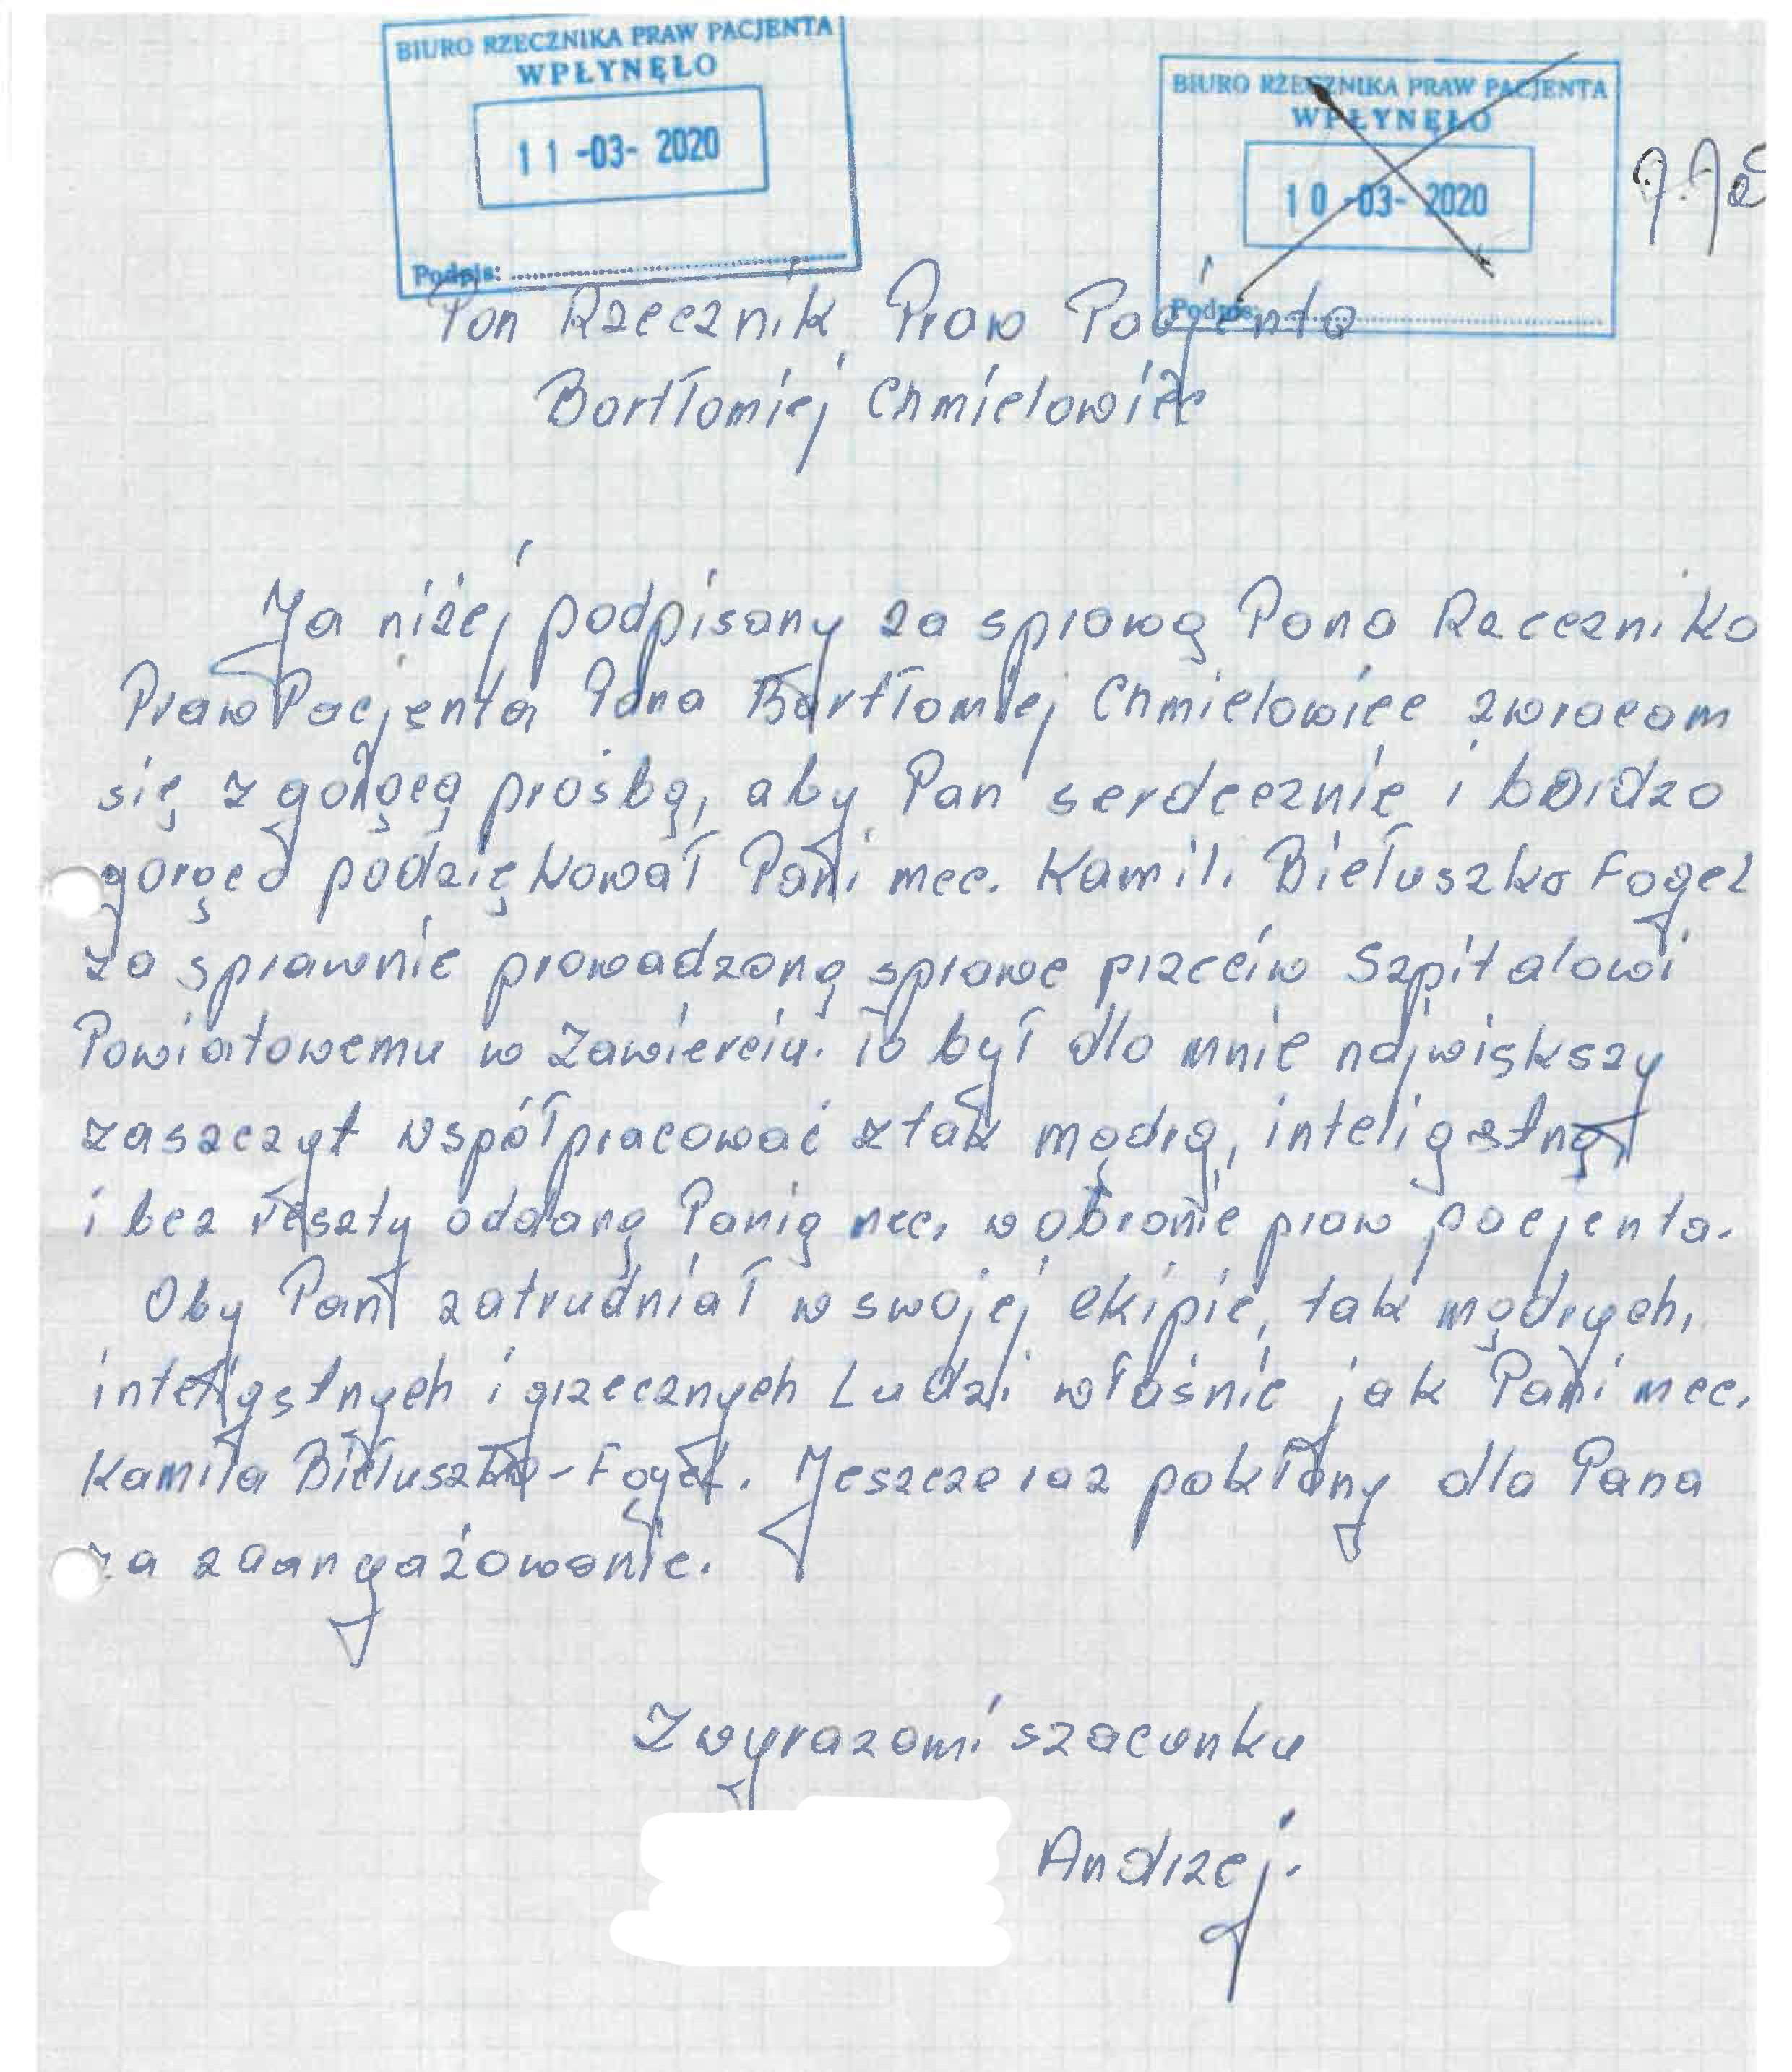 BIURO RZECZNIKA PRAW PACJENTA
WPŁYNĘŁO
11 -03- 2020
Podpis:
BIURO RZECZNIKA PRAW PACJENTA
WPŁYNĘŁO
10 -03- 2020
Podpis:
Pan Rzecznik Praw Pacjenta
Bartłomiej Chmielowiec
Ja niżej podpisany za sprawą Pana Rzecznika
Praw Pacjenta Pana Bartłomiej Chmielowiec zwracam
się z gorącą prośbą, aby Pan serdecznie i bardzo
gorąco podziękował Pani mec. Kamili Biełuszko Fogel
za sprawnie prowadzoną sprawe przeciw Szpitalowi
Powiatowemu w Zawierciu. To był dla mnie największy
zaszczyt współpracować z tak mądrą, inteligętną
i bez reszty oddaną Panią mec. w obronie praw pacjenta.
Oby Pan zatrudniał w swojej ekipie, tak mądrych,
inteligętnych i grzecznych Ludzi właśnie jak Pani mec.
Kamila Biełuszko-Fogel. Jeszcze raz pokłony dla Pana
za zaangażowanie.
Z wyrazami szacunku
Andrzej.